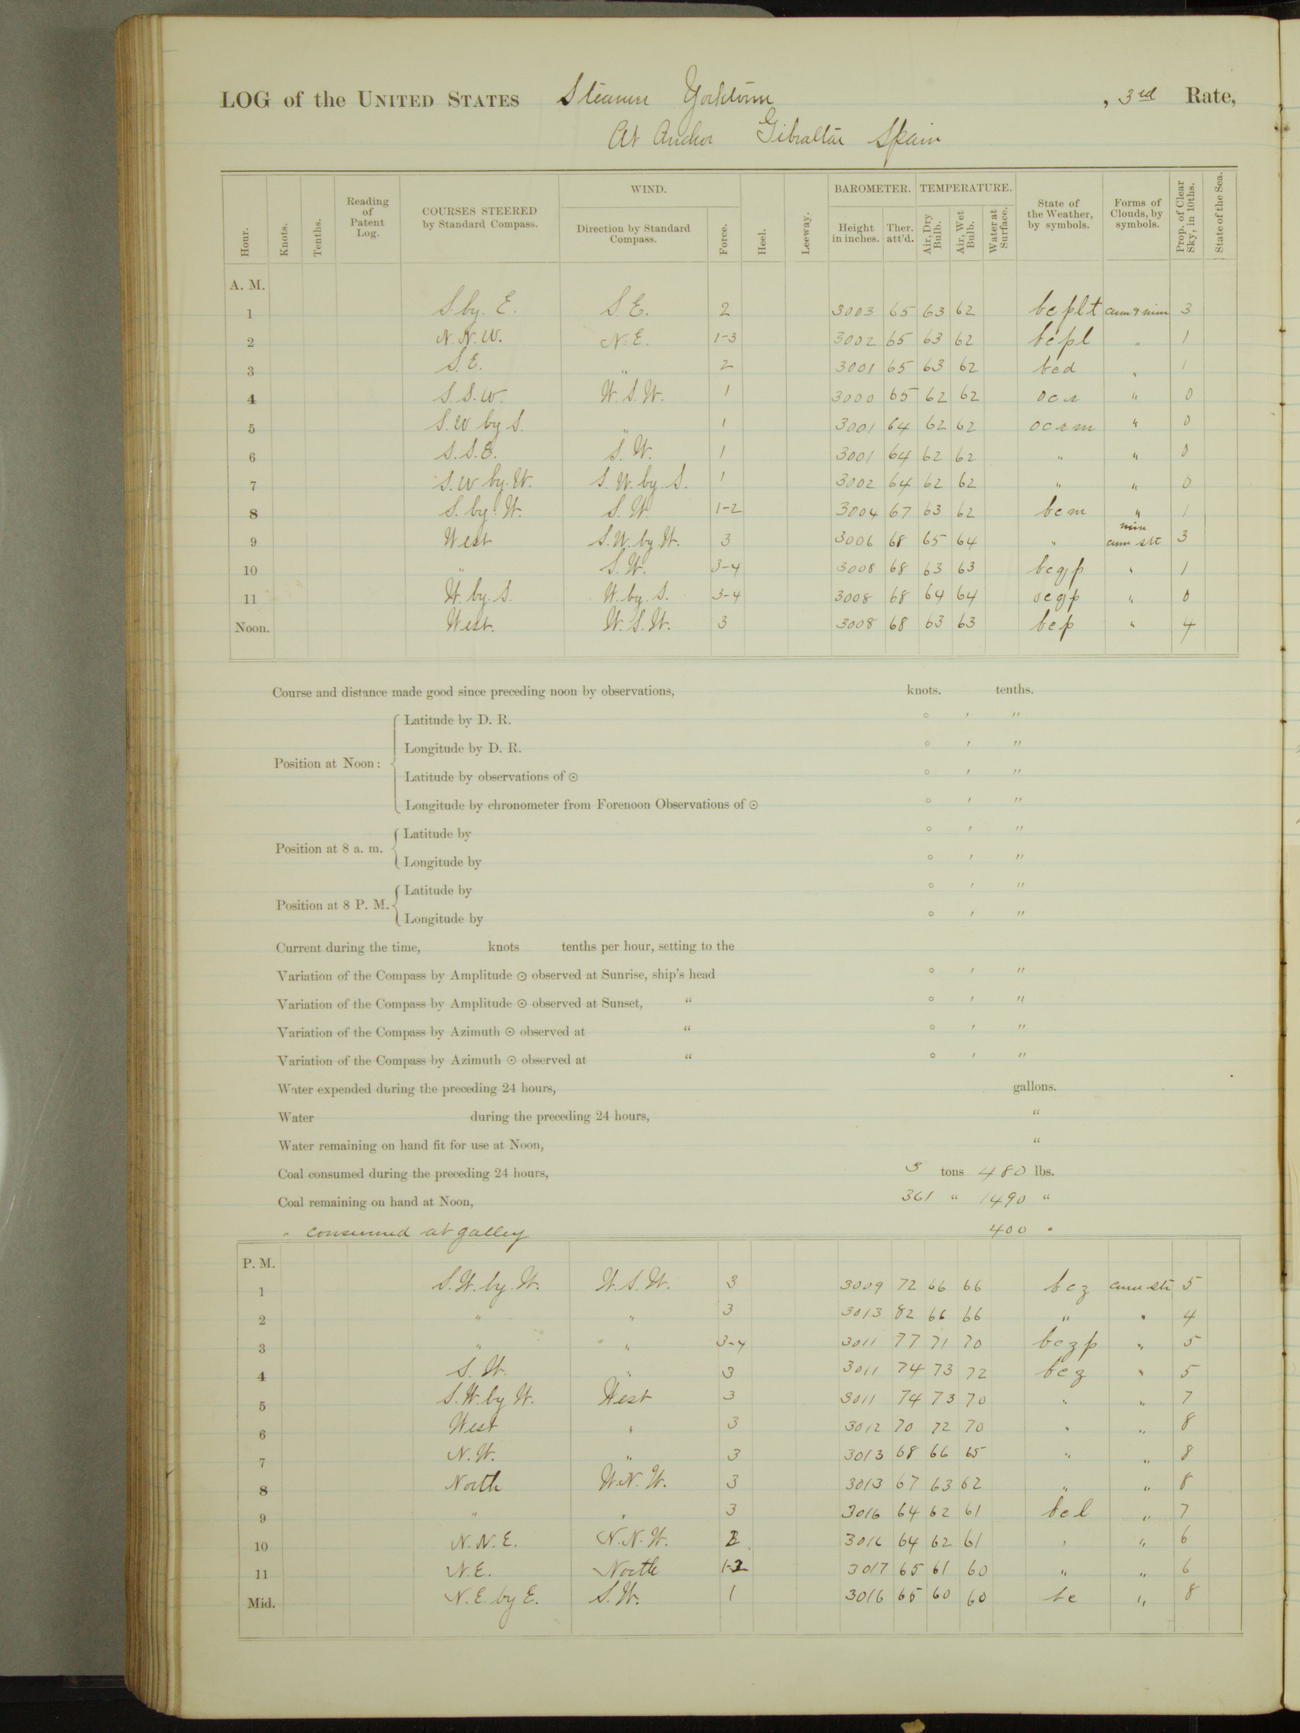 LOG of the UNITED STATES Steamer Yorktown, 3rd Rate,
At Anchor Gibraltar Spain
Hour. Knots. Tenths. Reading of Patent Log. COURSES STEERED by Standard Compass. WIND. Direction by Standard Compass. Force. Heel. Leeway. BAROMETER. Height in inches. Ther. att'd. TEMPERATURE. Air, Dry Bulb. Air, Wet Bulb. Water at Surface. State of the Weather, by symbols. Forms of Clouds, by symbols. Prop. of Clear Sky, in 10ths. State of the Sea.
A. M.
1 S. by. E. S. E. 2 3003 65 63 62 bcplt cum & nim 3
2 N. N. W. N. E. 1-3 3002 65 63 62 bcpl " 1
3 S. E. " 2 3001 65 63 62 bcd " 1
4 S. S. W. W. S. W. 1 3000 65 62 62 ocr " 0
5 S. W by S. " 1 3001 64 62 62 ocrm " 0
6 S. S. E. S. W. 1 3001 64 62 62 " " 0
7 S. W by. W. S. W. by. S. 1 3002 64 62 62 " " 0
8 S. by. W. S. W 1-2 3004 67 63 62 bcm " 1
9 West S. W. by W. 3 3006 68 65 64 " nim cum stt 3
10 " S. W. 3-4 3008 68 63 63 bcqp " 1
11 W. by. S. W. by. S. 3-4 3008 68 64 64 ocqp " 0
Noon. West. W. S. W. 3 3008 68 63 63 bcp " 4
Course and distance made good since preceding noon by observations, knots. tenths.
Position at Noon: Latitude by D. R. ° ′ ″
Longitude by D. R. ° ′ ″
Latitude by observations of ☉ ° ′ ″
Longitude by chronometer from Forenoon Observations of ☉ ° ′ ″
Position at 8 a. m. Latitude by ° ′ ″
Longitude by ° ′ ″
Position at 8 P. M. Latitude by ° ′ ″
Longitude by ° ′ ″
Current during the time, knots tenths per hour, setting to the
Variation of the Compass by Amplitude ☉ observed at Sunrise, ship's head ° ′ ″
Variation of the Compass by Amplitude ☉ observed at Sunset, " ° ′ ″
Variation of the Compass by Azimuth ☉ observed at " ° ′ ″
Variation of the Compass by Azimuth ☉ observed at " ° ′ ″
Water expended during the preceding 24 hours, gallons.
Water during the preceding 24 hours, "
Water remaining on hand fit for use at Noon, "
Coal consumed during the preceding 24 hours, 3 tons 480 lbs.
Coal remaining on hand at Noon, 361 " 1490 "
" consumed at galley 400 "
P. M.
1 S. W. by. W. W. S. W. 3 3009 72 66 66 bcz cum stt 5
2 " " 3 3013 82 66 66 " " 4
3 " " 3-4 3011 77 71 70 bczp " 5
4 S. W. " 3 3011 74 73 72 bcz " 5
5 S. W. by W. West 3 3011 74 73 70 " " 7
6 West " 3 3012 70 72 70 " " 8
7 N. W. " 3 3013 68 66 65 " " 8
8 North W. N. W. 3 3013 67 63 62 " " 8
9 " " 3 3016 64 62 61 bcl " 7
10 N. N. E. N. N. W. 2 3016 64 62 61 " " 6
11 N. E. North 1-2 3017 65 61 60 " " 6
Mid. N. E. by E. S. W. 1 3016 65 60 60 bc " 8